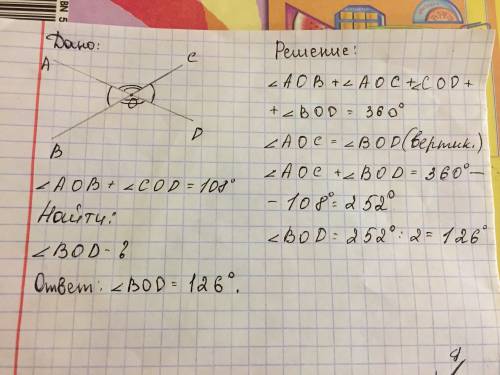 BN 5
Дано:
A
C
O
B
D
∠AOB + ∠COD = 108°
Найти:
∠BOD - ?
Ответ: ∠BOD = 126°.
Решение:
∠AOB + ∠AOC + ∠COD +
+ ∠BOD = 360°
∠AOC = ∠BOD (вертик.)
∠AOC + ∠BOD = 360° -
- 108° = 252°
∠BOD = 252° : 2 = 126°